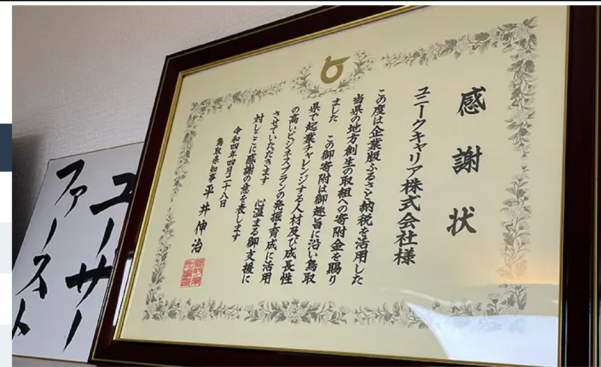 感謝状
ユニークキャリア株式会社様
この度は企業版ふるさと納税を活用した
当県の地方創生の取組への寄附金を賜り
ました　この御寄附は御趣旨に沿い鳥取
県で起業チャレンジする人材及び成長性
の高いビジネスプランの発掘・育成に活用
させていただきます　心温まる御支援に
対しここに感謝の意を表します
令和四年四月二十八日
鳥取県知事 平井伸治
ユーザー
ファースト